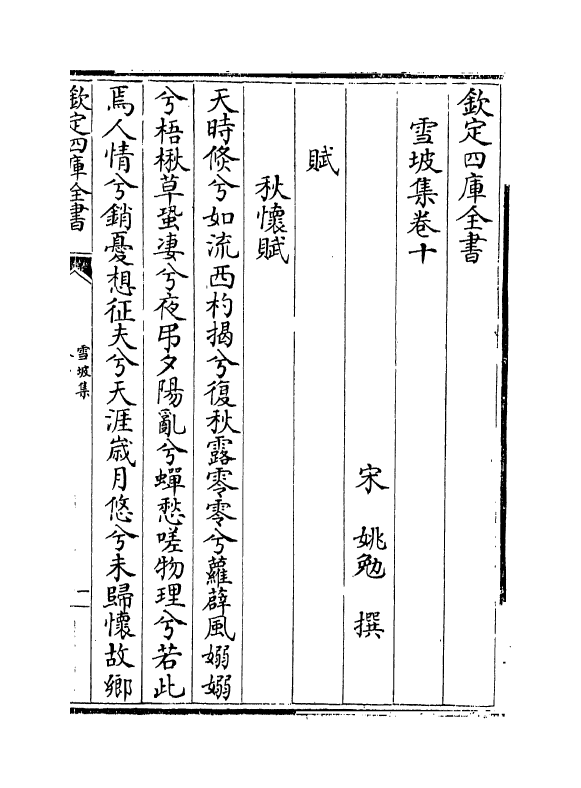 欽定四庫全書
雪坡集卷十
宋　姚勉　撰
賦
秋懷賦
天時倐兮如流西杓揭兮復秋露零零兮蘿薜風嫋嫋
兮梧楸草蛩凄兮夜弔夕陽亂兮蟬愁嗟物理兮若此
焉人情兮銷憂想征夫兮天涯歳月悠兮未歸懷故鄉
欽定四庫全書
雪坡集